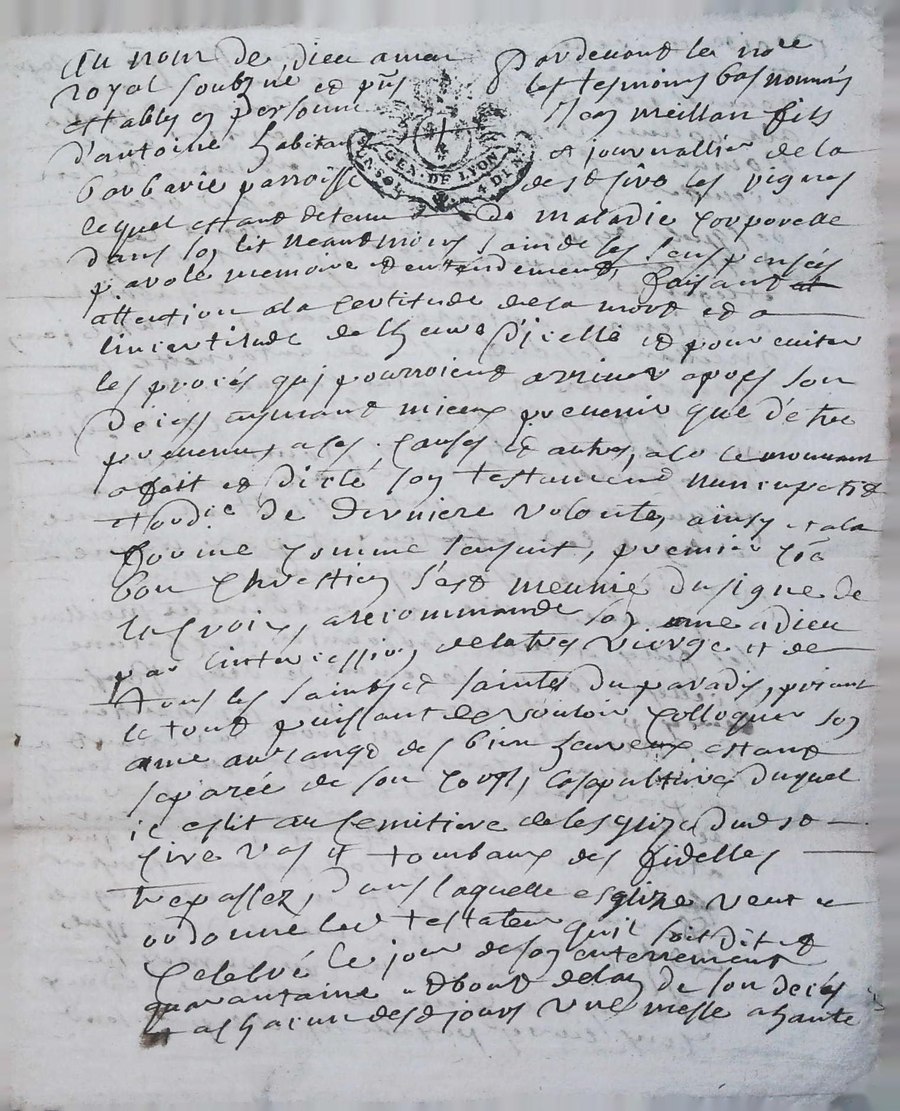 Au nom de Dieu amen Pardevant le no.re
royal soubzné et pñs les tesmoins bas nommés
estably en personne Jean meillan fils
d'antoine habitant et journallier de la
barbarie parroisse de st sivo les vignes
lequel estant detenu de maladie corporelle
dans son lit neantmoins sain de ses sens pensees
parole memoire et entendement, faisant
attention a la certitude de la mort et a
lincertitude de lheure d'icelle et pour eviter
les procés qui pourroient arriver apres son
déces aymant mieux prevenir que d'etre
prevenu, a ces causes et autres, a lo le mouvant
a fait et dicté son testament nuncupatif
et ordce de derniere volonté, ainsy et a la
forme comme sensuit, premier coe
bon chrestien s'est meunie du signe de
la croix, a recommandé son ame a dieu
par lintercession de la tres vierge et de
tous les saints et saintes du paradis, priant
le tout puissant de vouloir colloquer son
ame au rang des bien heureux estant
separée de son corps, la sepulture duquel
il eslit au cemitiere de lesglize dud st
sivo vas et tombaux des fidelles
trepassez, dans laquelle esglize veut et
ordonne led testateur quil soit dit et
celebré le jour de son enterrement
quarantaine et bout de lan de son decés
et a chacun desd jours une messe a haute
GEN. DE LYON
4 DEN